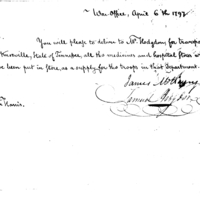 War Office, April 6th 1797
You will please to deliver to Mr. Hodgdon for transpo
State of Tennessee, All the medicines and hospital stores w
been put in store, as a supply for the troops in that Department.
James McHenry
Samuel Hodgdon
Harris.